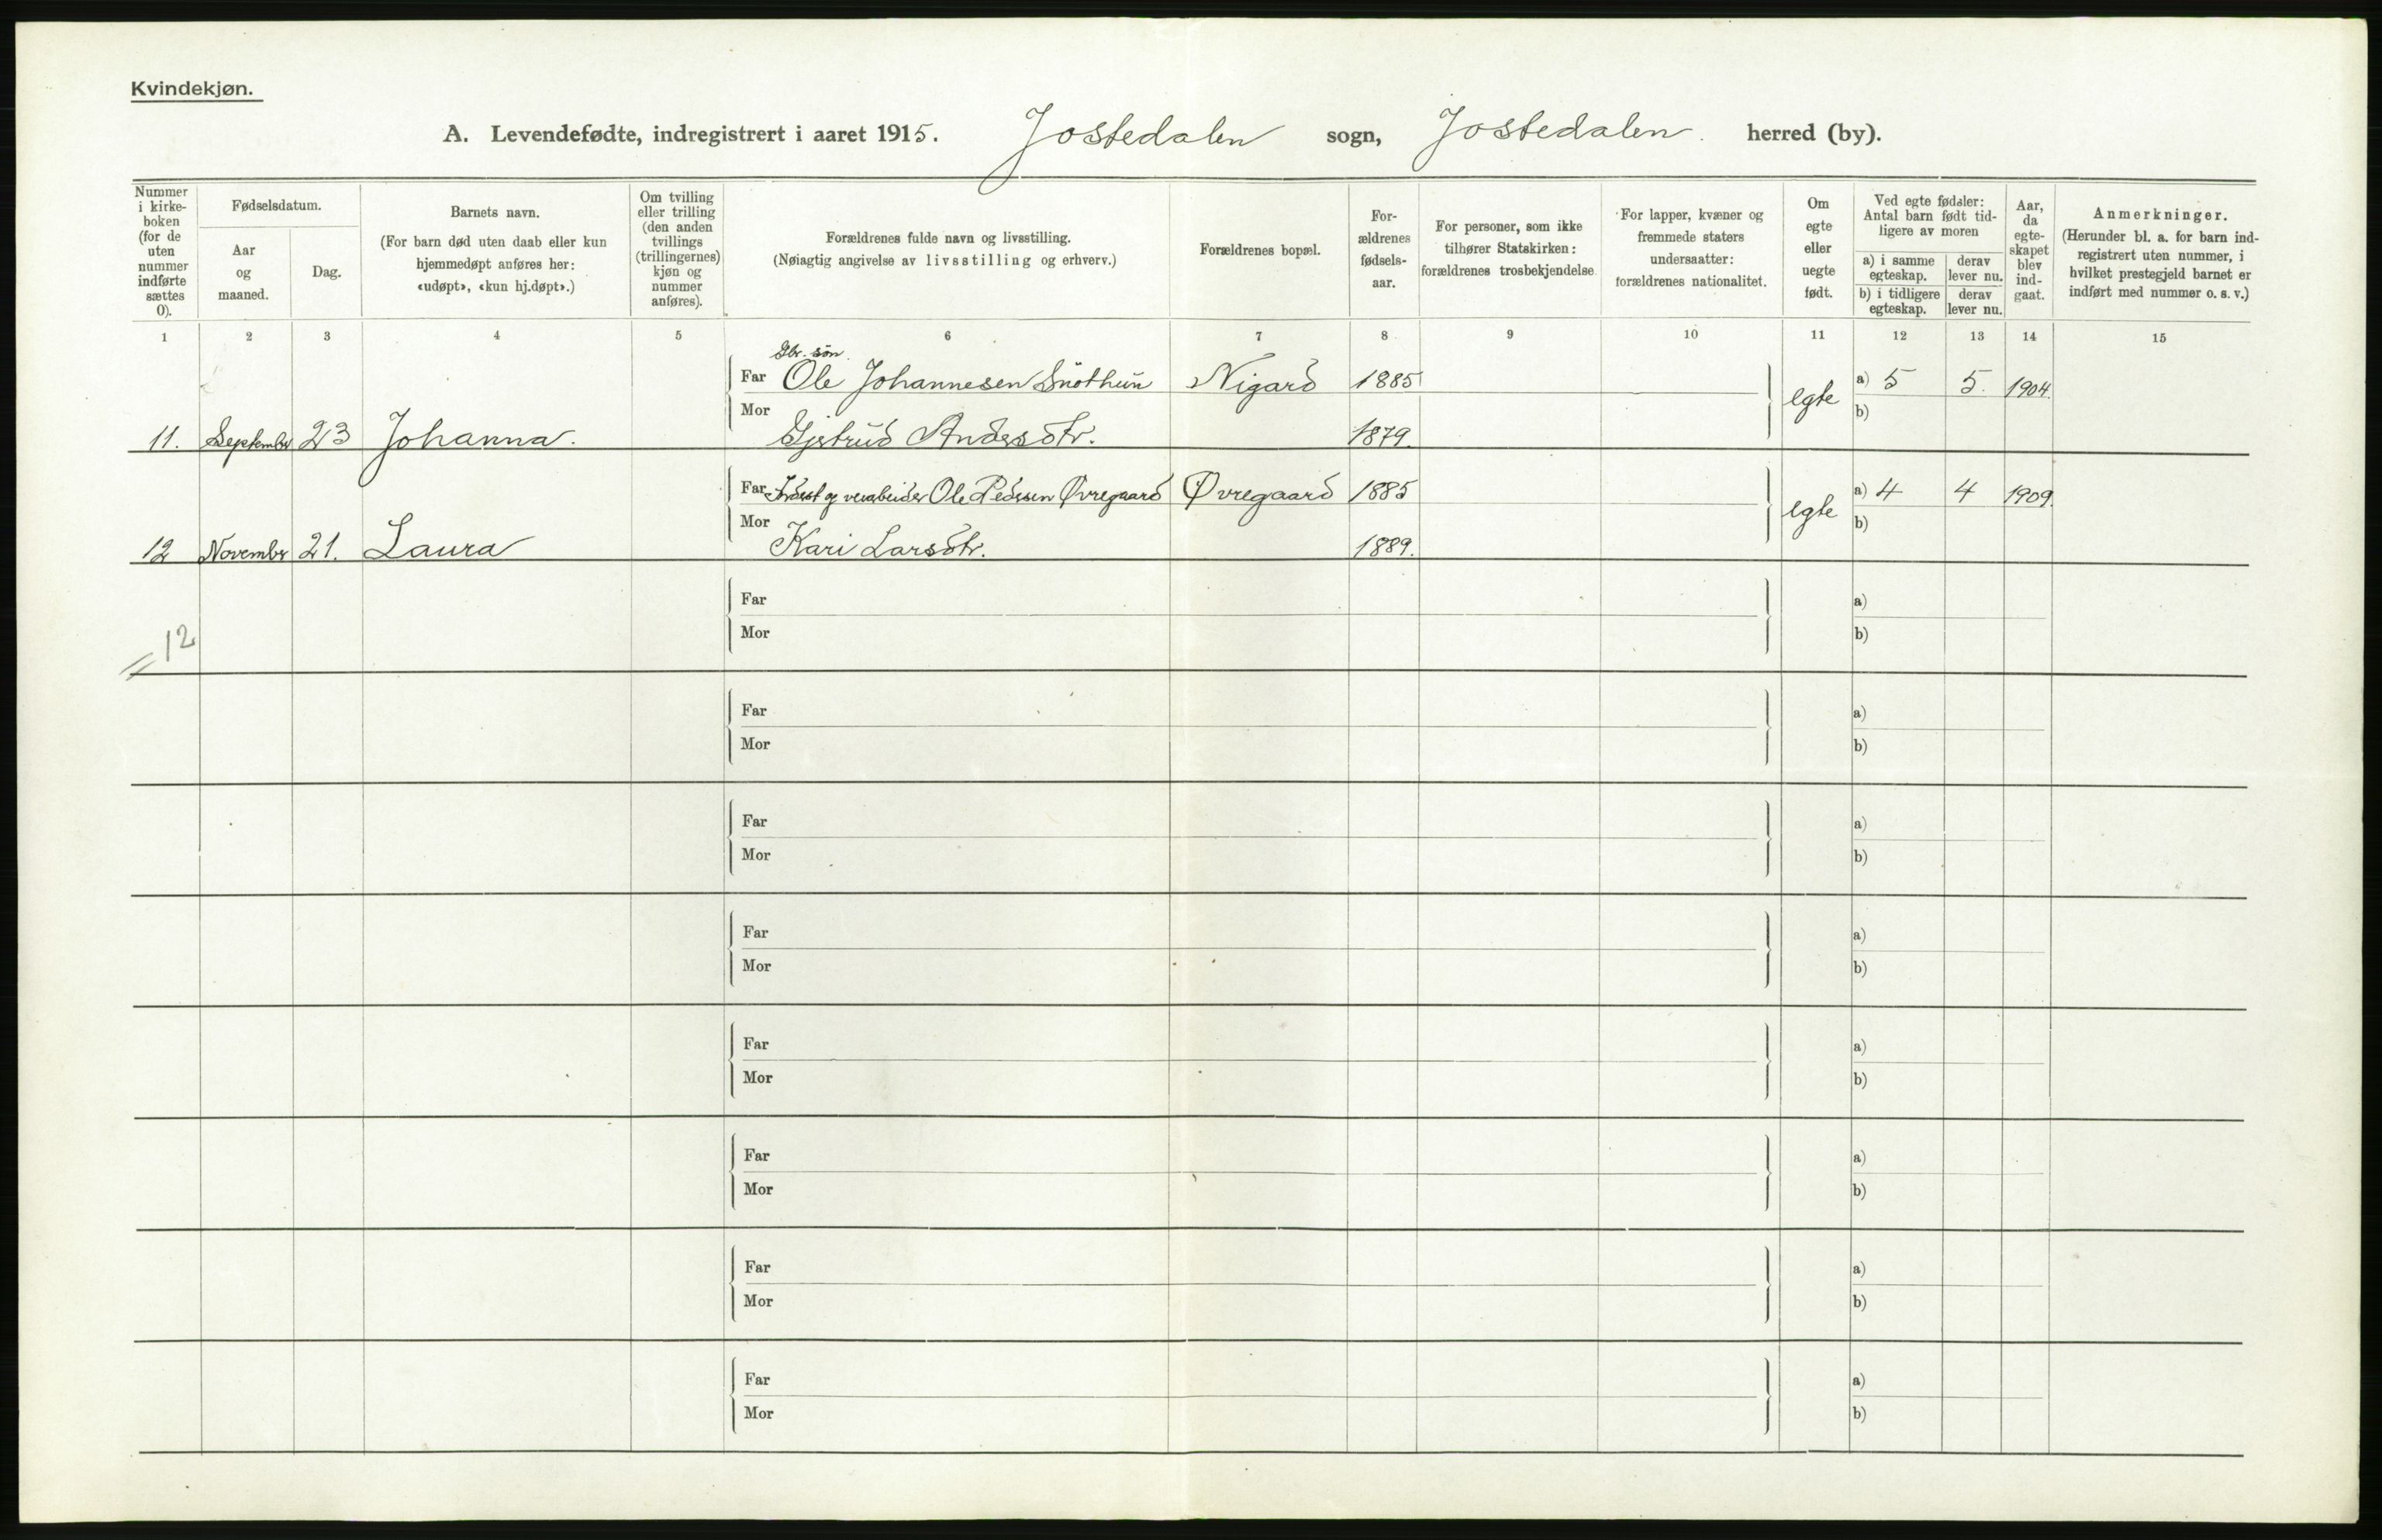 Kvindekjøn.
A. Levendefødte, indregistrert i aaret 1915. Jostedalen sogn, Jostedalen. herred (by).
Nummer i kirke-boken (for de uten nummer indførte sættes 0).
Fødselsdatum.
Aar og maaned.
Dag.
Barnets navn.
(For barn død uten daab eller kun hjemmedøpt anføres her: «udøpt», «kun hj.døpt».)
Om tvilling eller trilling (den anden tvillings (trillingernes) kjøn og nummer anføres).
Forældrenes fulde navn og livsstilling.
(Nøiagtig angivelse av livsstilling og erhverv.)
Forældrenes bopæl.
For-ældrenes fødsels-aar.
For personer, som ikke tilhører Statskirken: forældrenes trosbekjendelse
For lapper, kvæner og fremmede staters undersaatter: forældrenes nationalitet.
Om egte eller uegte født.
Ved egte fødsler: Antal barn født tid-ligere av moren
a) i samme egteskap.
derav lever nu.
b) i tidligere egteskap.
derav lever nu.
Aar, da egte-skapet blev ind-gaat.
Anmerkninger.
(Herunder bl. a. for barn ind-registrert uten nummer, i hvilket prestegjeld barnet er indført med nummer o. s. v.)
1 2 3 4 5 6 7 8 9 10 11 12 13 14 15
Gbr. søn.
Far Ole Johannesen Snøthun Nigard 1885 egte a) 5 5. 1904.
Mor b)
11. September 23 Johanna. Gjertrud Andersdtr. 1879.
Far og veiarbeider Ole Pedersen Øvregaard Øvregaard 1885 egte a) 4 4 1909.
Mor b)
12 November 21. Laura Kari Larsdtr. 1889.
Far a)
Mor b)
12
Far a)
Mor b)
Far a)
Mor b)
Far a)
Mor b)
Far a)
Mor b)
Far a)
Mor b)
Far a)
Mor b)
Far a)
Mor b)